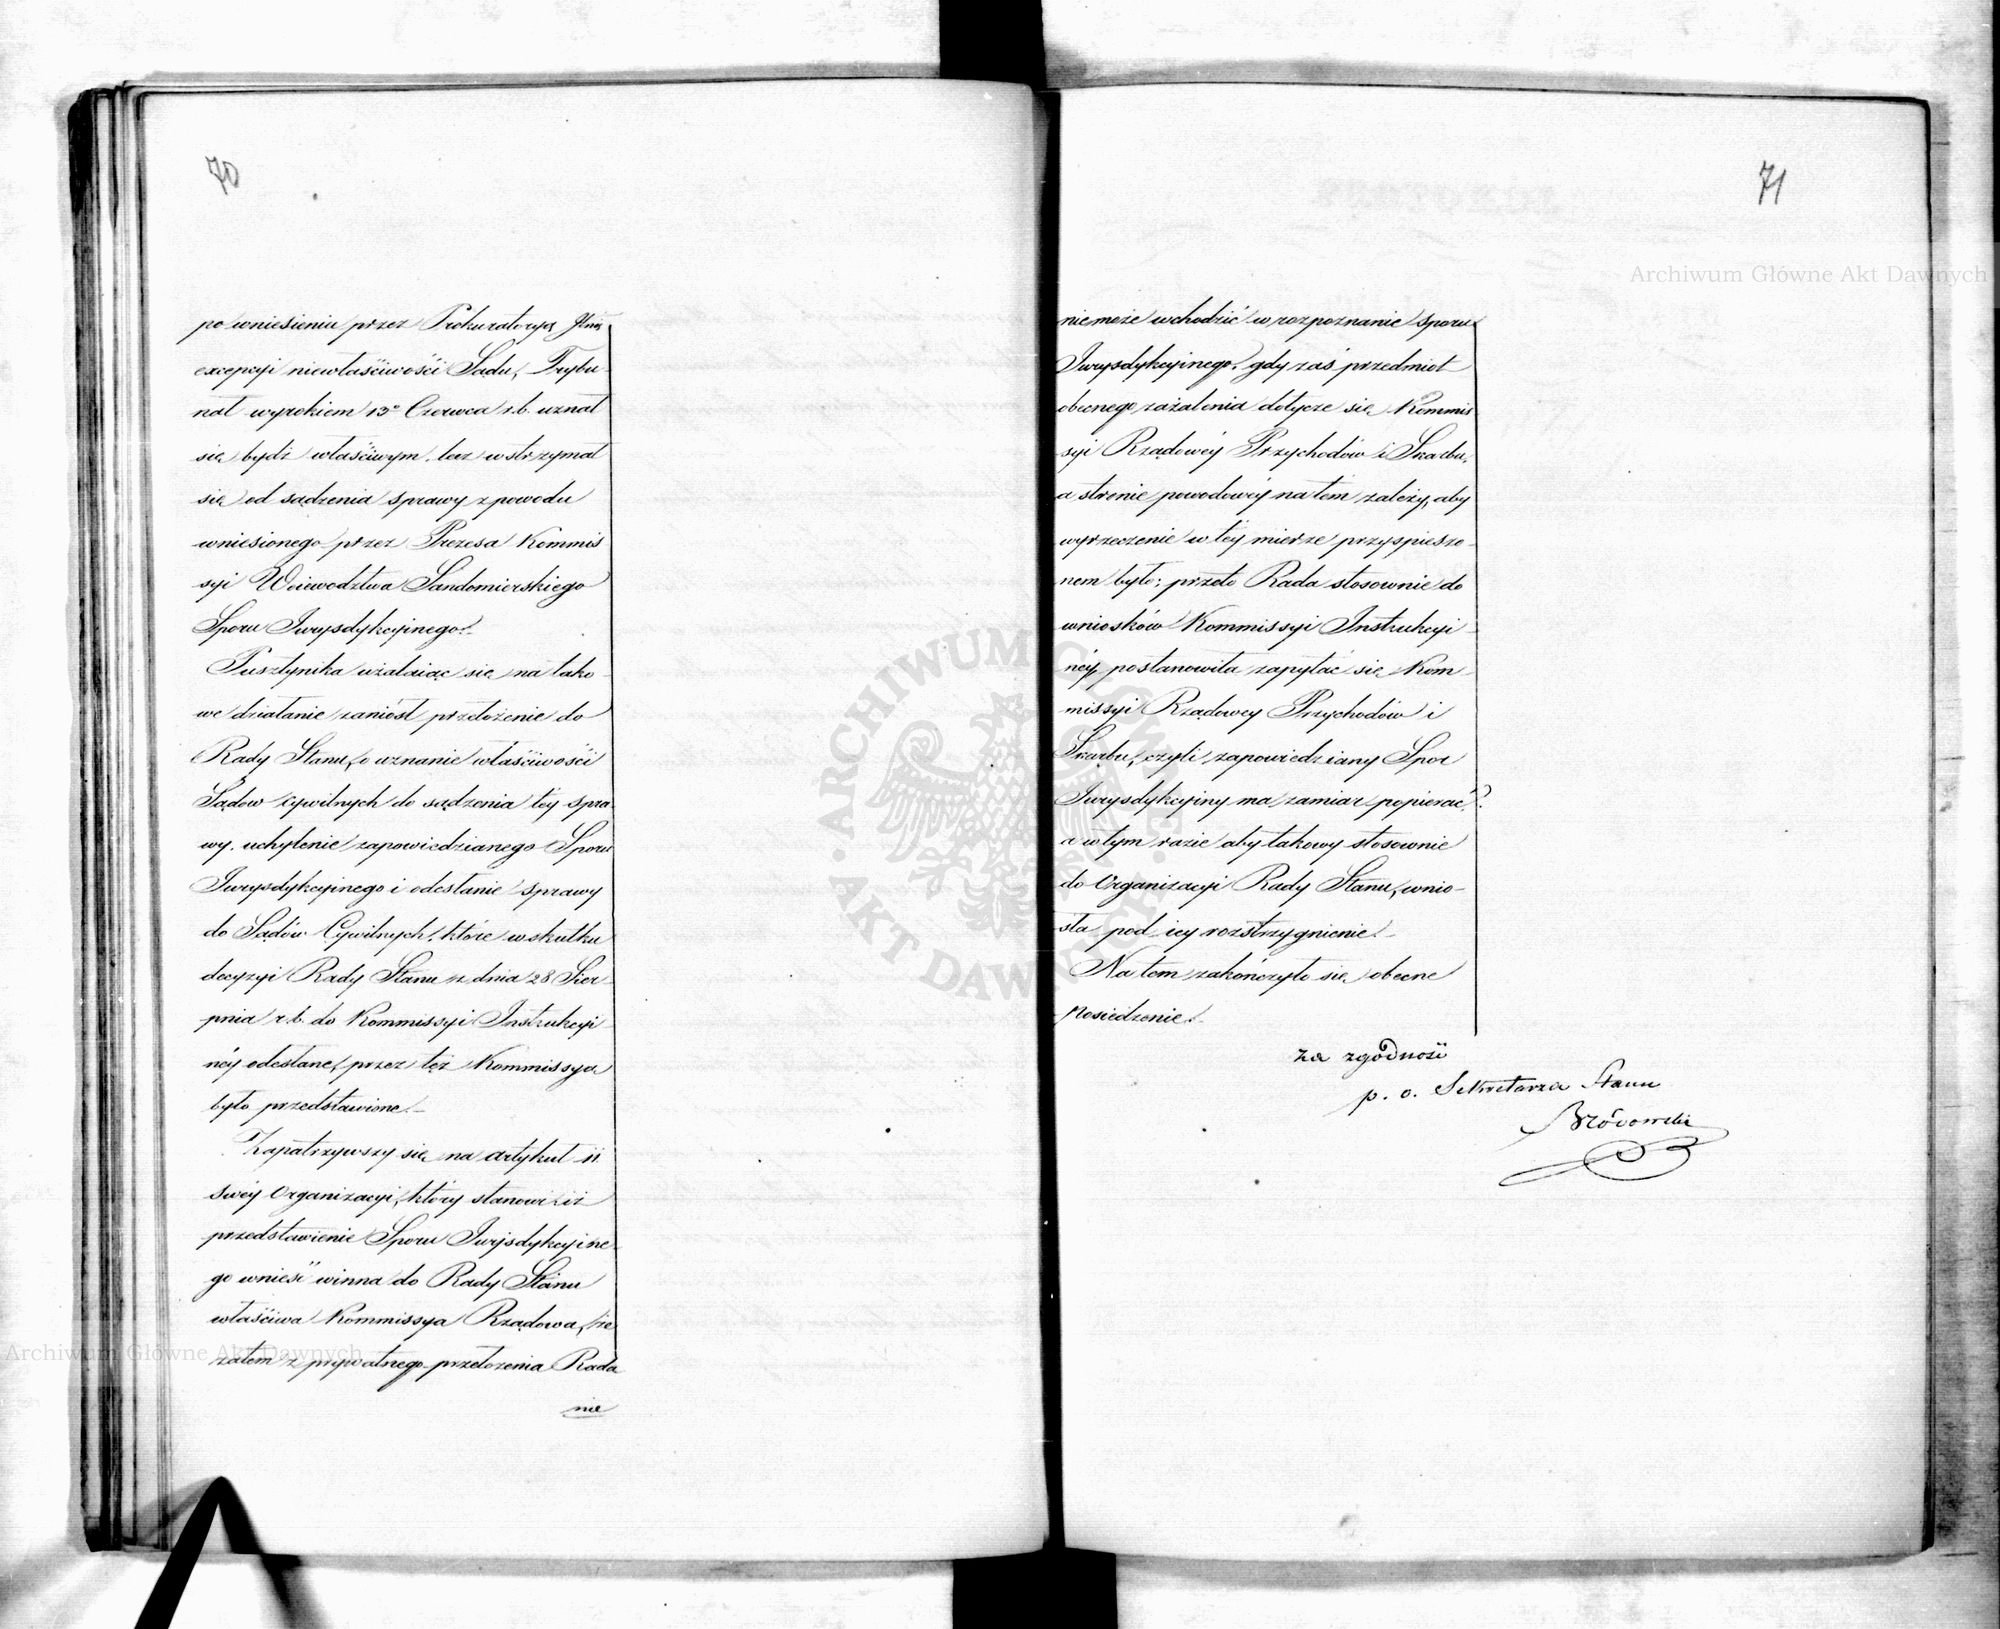 70
po wniesieniu przez Prokuratoryą
excepcyi niewłaściwości Sądu, Trybu-
nał wyrokiem 13° Czerwca r.b. uznał
się bydź właściwym, lecz wstrzymał
się od sądzenia sprawy z powodu
wniesionego przez Prezesa Kommis
syi Woiewodztwa Sandomierskiego
Sporu Jurysdykcyinego.
Pusztynika użalaiąc się na tako-
we działanie zaniósł przełożenie do
Rady Stanu, o uznanie właściwości
Sądow cywilnych do sądzenia téy spra-
wy, uchylenie zapowiedzianego Sporu
Jurysdykcyinego i odesłanie sprawy
do Sądów Cywilnych, które w skutku
decyzyi Rady Stanu z dnia 28 Sier-
pnia r.b. do Kommissyi Instrukcyi-
néy odesłane, przez też Kommissyą
było przedstawione.
Zapatrzywszy się na artykuł 11
swéy Organizacyi, który stanowi, iż
przedstawienie Sporu Jurysdykcyine-
go wnieść winna do Rady Stanu
właściwa Kommissya Rządowa, że
zatem z prywatnego przełożenia Rada
nie
71
nie może wchodzić w rozpoznanie sporu
Jurysdykcyinego, gdy zaś przedmiot
obecnego zażalenia dotycze się Kommis
syi Rządowéy Przychodów i Skarbu,
a stronie powodowéy na tem zależy, aby
wyrzeczenie w téy mierze przyspieszo-
nem było; przeto Rada stosownie do
wniosków Kommissyi Instrukcyi-
néy, postanowiła zapytać się Kom-
missyi Rządowey Przychodów i
Skarbu, czyli zapowiedziany Spor
Jurysdykcyiny ma zamiar popierać?
a w tym razie aby takowy stosownie
do Organizacyi Rady Stanu, wnio-
sła pod iey rozstrzygnienie.
Na tem zakończyło się obecne
posiedzenie.
za zgodność
p. o. Sekretarza Stanu
Brzozowski
Archiwum Główne Akt Dawnych
Archiwum Główne Akt Dawnych
ARCHIWUM GŁÓWNE AKT DAWNYCH